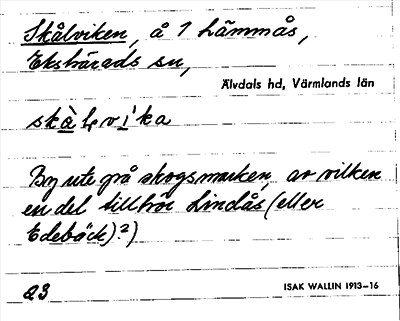 Skålviken, å 1 Lämmås,
Ekshärads sn,
Älvdals hd, Värmlands län
skàlvìka
By ute på skogsmarken, av vilken
en del tillhör Lindås (eller
Edebäck).²)
a3
ISAK WALLIN 1913–16